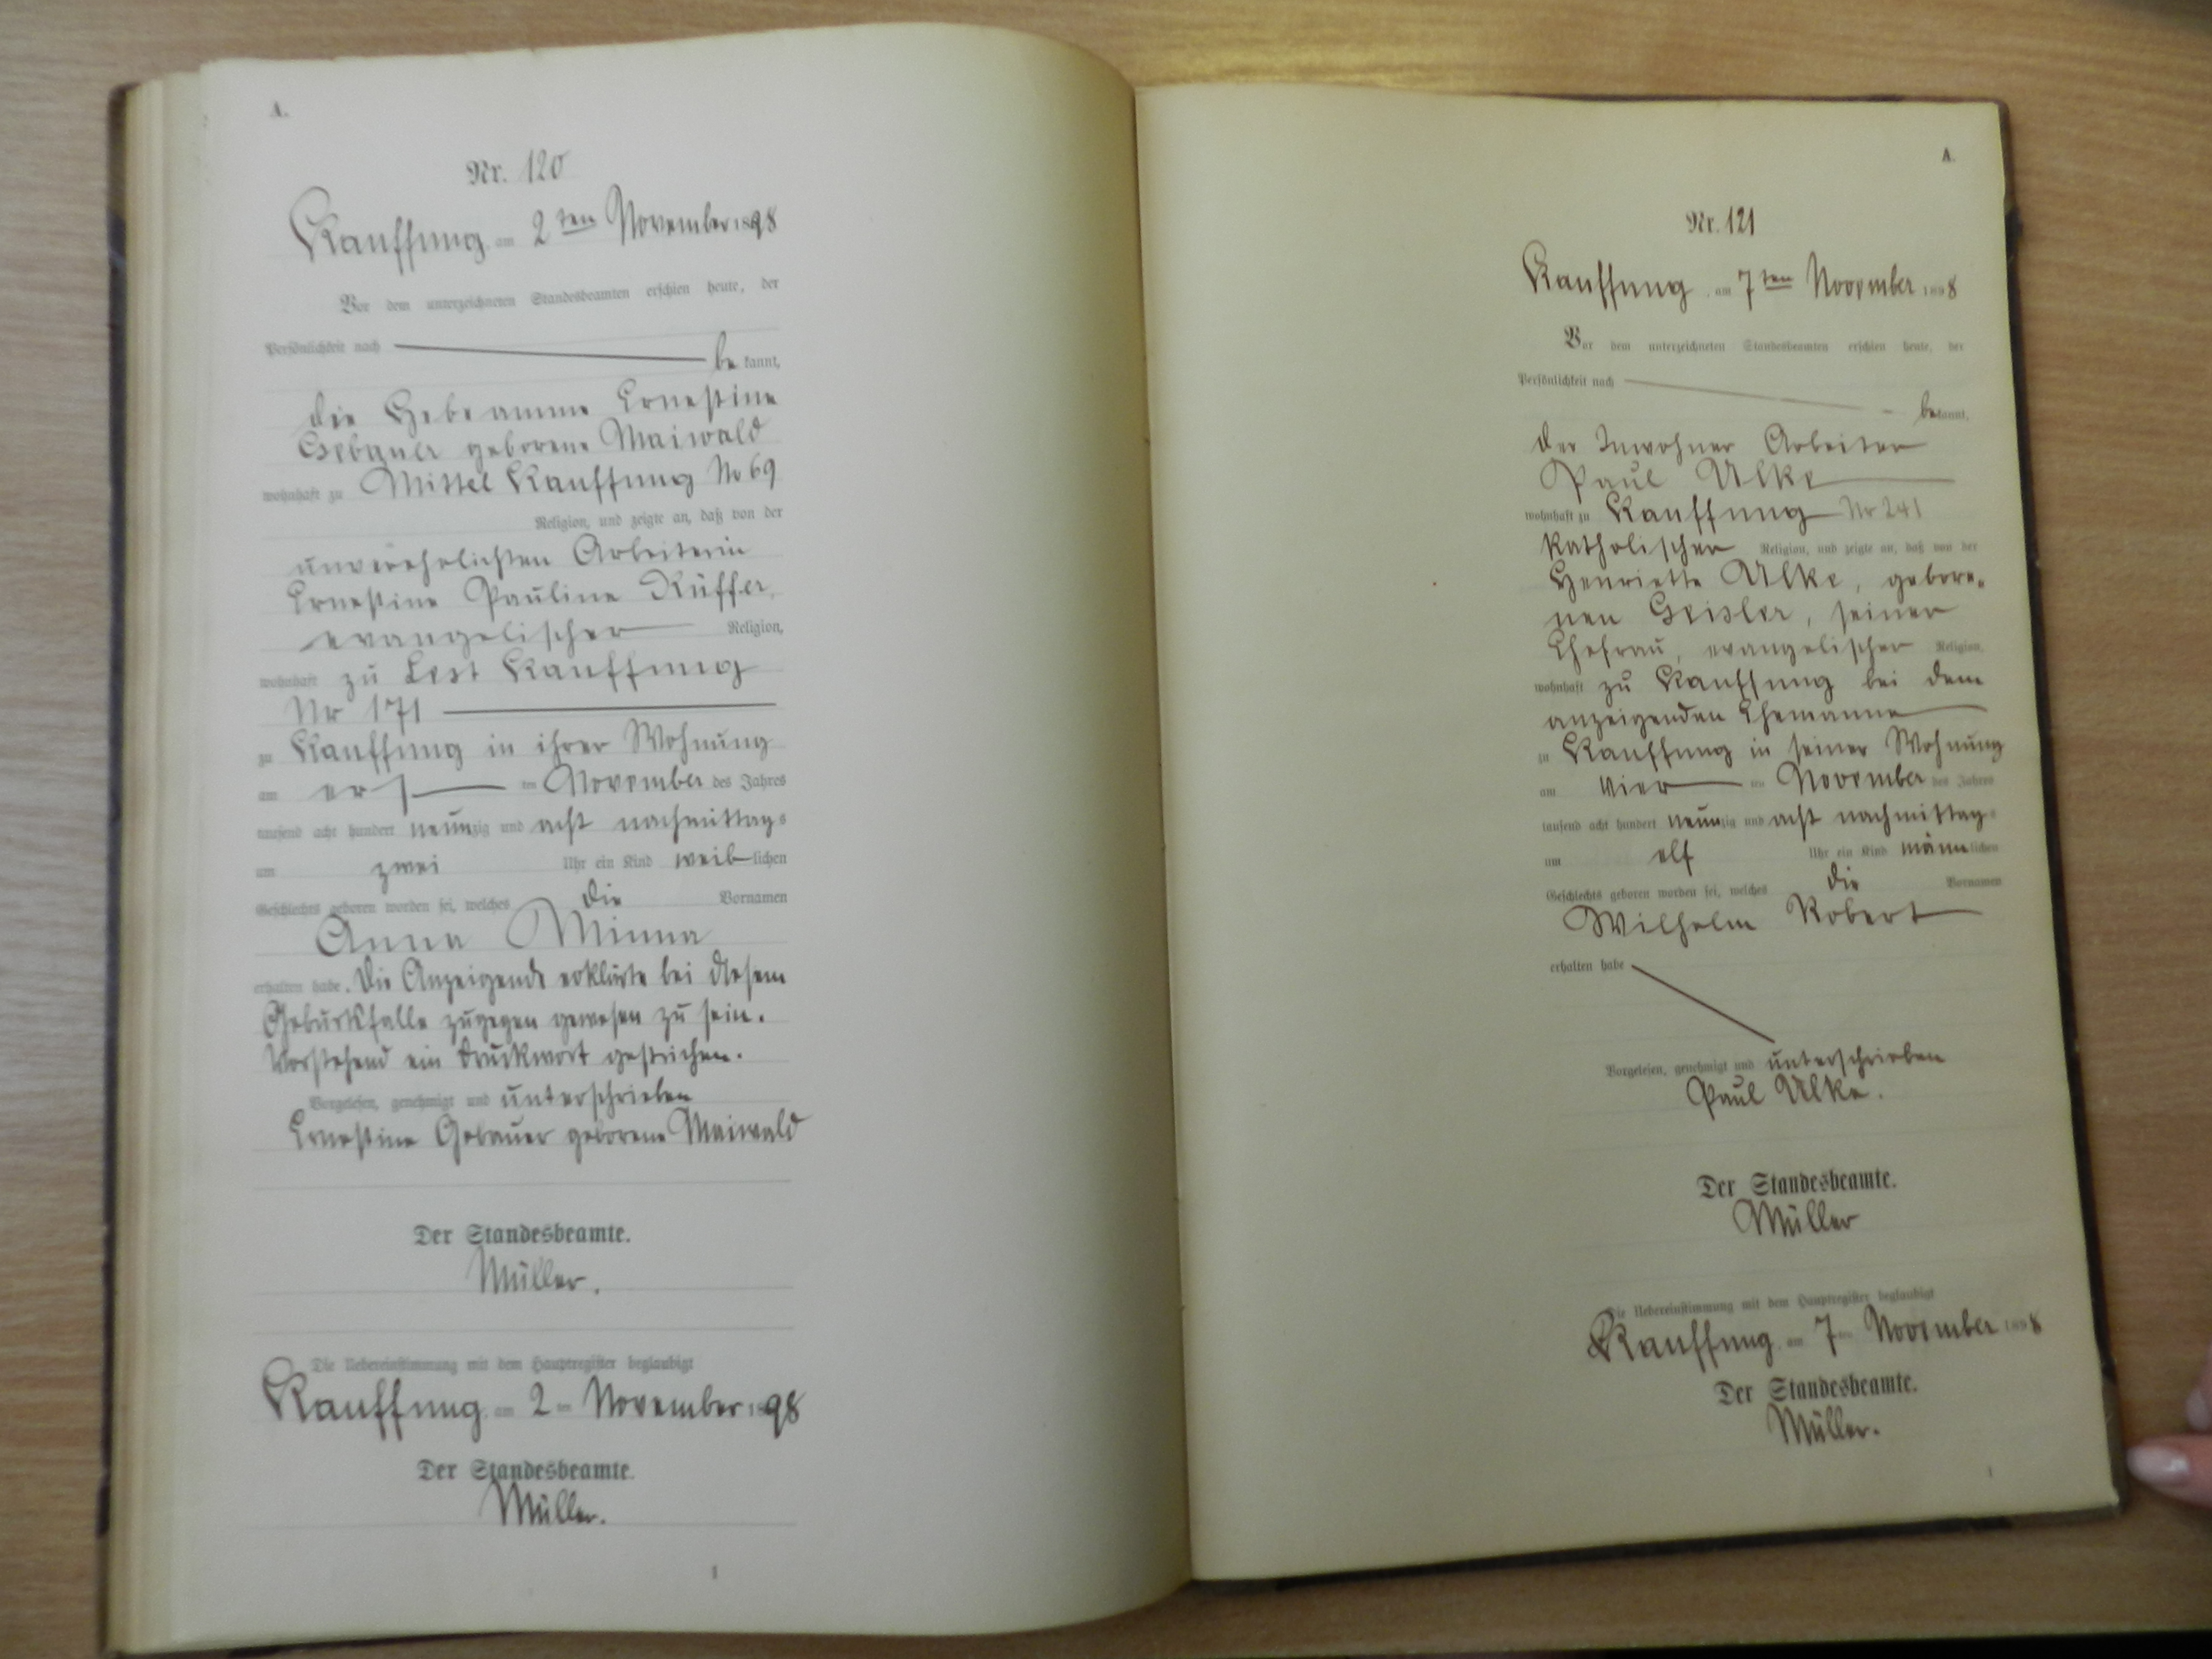 A.
Nr. 120
Kauffung, am 2ten November 1898
Vor dem unterzeichneten Standesbeamten erschien heute, der
Persönlichkeit nach
bekannt,
die Hebeamme Ernestine
Gebauer geborene Maiwald
wohnhaft zu Mittel Kauffung No 69
Religion, und zeigte an, daß von der
unverehelichten Arbeiterin
Ernestine Pauline Küffer,
evangelischer Religion,
wohnhaft zu Lest Kauffung
Nr 171
zu Kauffung in ihrer Wohnung
am ersten November des Jahres
tausend acht hundert neunzig und acht nachmittags
um zwei Uhr ein Kind weiblichen
Geschlechts geboren worden sei, welches die Vornamen
Anna Minna
erhalten habe. Die Anzeigende erklärte bei diesem
Geburtsfalle zugegen gewesen zu sein.
Vorstehend ein Druckwort gestrichen.
Vorgelesen, genehmigt und unterschrieben
Ernestine Gebauer geborene Maiwald
Der Standesbeamte.
Müller.
Die Uebereinstimmung mit dem Hauptregister beglaubigt
Kauffung, am 2ten November 1898
Der Standesbeamte.
Müller.
1
A.
Nr. 121
Kauffung, am 7ten November 1898
Vor dem unterzeichneten Standesbeamten erschien heute, der
Persönlichkeit nach
bekannt,
der Inwohner Arbeiter
Paul Ulke
wohnhaft zu Kauffung Nr 241
katholischer Religion, und zeigte an, daß von der
Henriette Ulke, gebore-
nen Geisler, seiner
Ehefrau, evangelischer Religion,
wohnhaft zu Kauffung bei dem
anzeigenden Ehemanne
zu Kauffung in seiner Wohnung
am vierten November des Jahres
tausend acht hundert neunzig und acht nachmittags
um elf Uhr ein Kind männlichen
Geschlechts geboren worden sei, welches die Vornamen
Wilhelm Robert
erhalten habe
Vorgelesen, genehmigt und unterschrieben
Paul Ulke.
Der Standesbeamte.
Müller
Die Uebereinstimmung mit dem Hauptregister beglaubigt
Kauffung, am 7ten November 1898
Der Standesbeamte.
Müller.
1